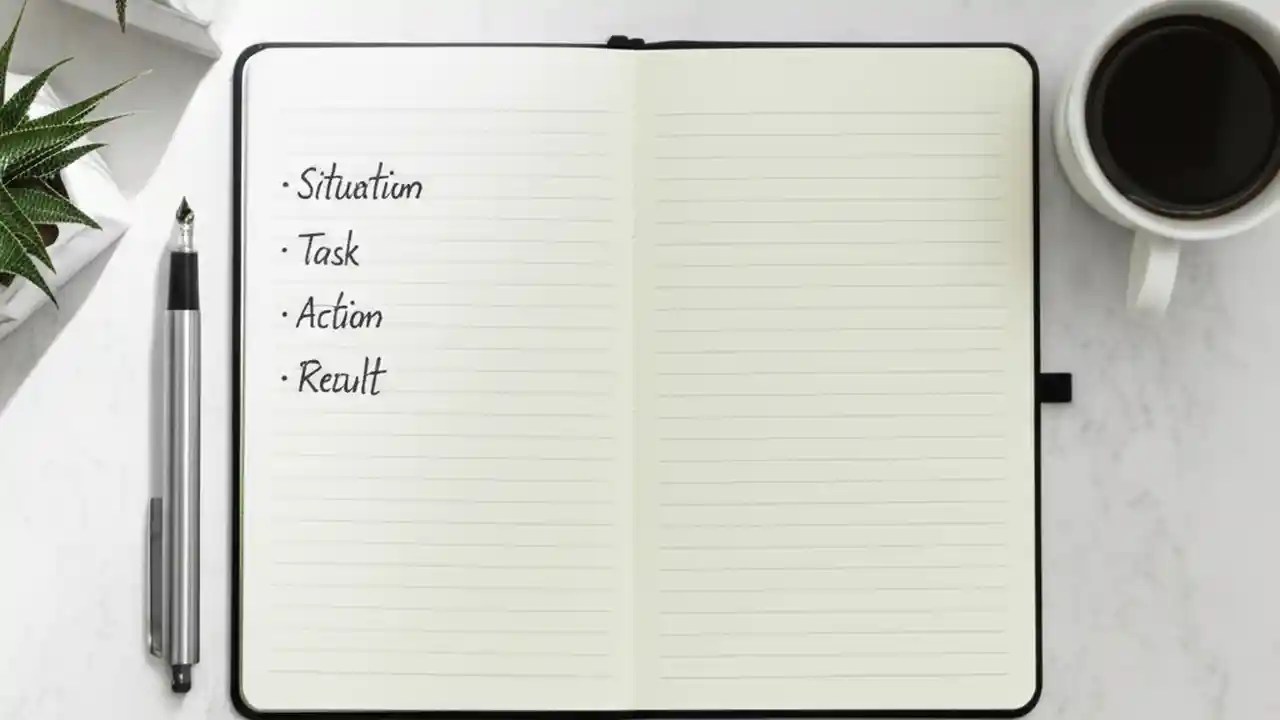 · Situation
· Task
· Action
· Result